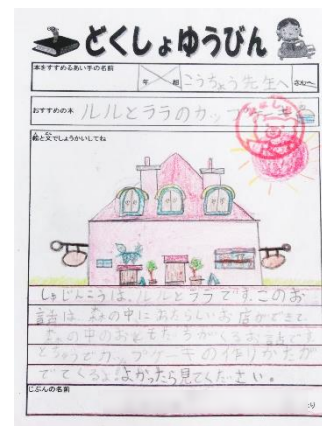 どくしょゆうびん
本をすすめるあい手の名前
年 組 こうちょう先生へ さんへ
おすすめの本 ルルとララのカップ
絵と文でしょうかいしてね
しゅじんこうは、ルルとララです。このお
話は森の中にあたらしいお店ができて
森の中のおともだちがくるお話です。
とちゅうでカップケーキの作りかたが
でてくるよ。よかったら見てください。
じぶんの名前